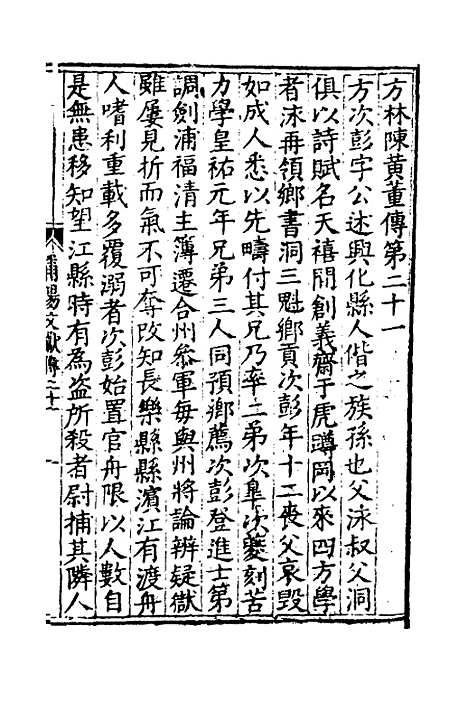 方林陳黃董傳第二十一
方次彭字公述興化縣人偕之族孫也父泳叔父洞
俱以詩賦名天禧間創義齋于虎蹲岡以來四方學
者泳再領鄉書洞三魁鄉貢次彭年十二喪父哀毀
如成人悉以先疇付其兄乃率二弟次皐次夔刻苦
力學皇祐元年兄弟三人同預鄉薦次彭登進士第
調劍浦福清主簿遷合州叅軍每與州將論辨疑獄
雖屢見折而氣不可奪改知長樂縣縣濱江有渡舟
人嗜利重載多覆溺者次彭始置官舟限以人數自
是無患移知望江縣時有為盗所殺者尉捕其隣人
莆陽文獻傳二十一 一